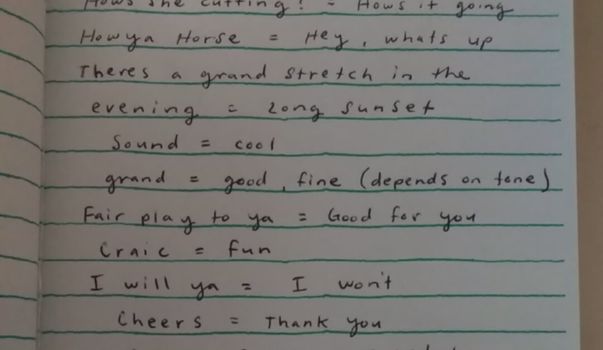 Hows she cutting? - Hows it going
Howya Horse = Hey, whats up
Theres a grand stretch in the
evening = Long sunset
Sound = cool
grand = good, fine (depends on tone)
Fair play to ya = Good for you
Craic = fun
I will ya = I won't
Cheers = Thank you